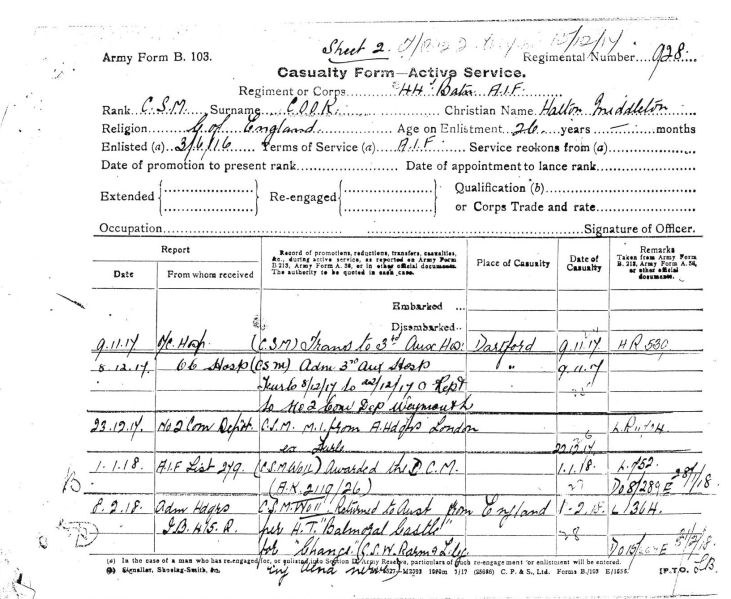 Sheet 2. 12/12/17
Army Form B. 103. Regimental Number...928.
Casualty Form—Active Service.
Regiment or Corps 44th Batn A.I.F.
Rank C.S.M. Surname COOK. Christian Name Halton Middleton
Religion C. of England Age on Enlistment 26 years — months
Enlisted (a) 3/6/16 Terms of Service (a) A.I.F. Service reckons from (a)
Date of promotion to present rank Date of appointment to lance rank
Extended { } Re-engaged { } Qualification (b)
or Corps Trade and rate
Occupation Signature of Officer.
Report
Date From whom received
Record of promotions, reductions, transfers, casualties,
&c., during active service, as reported on Army Form
B.213, Army Form A. 36, or in other official documents.
The authority to be quoted in each case.
Place of Casualty
Date of
Casualty
Remarks
Taken from Army Form
B. 213, Army Form A. 36,
or other official
documents.
Embarked ...
Disembarked..
9.11.17 O/C. Hosp (C.S.M) Trans to 3rd Aux Hos: Dartford 9.11.17 HR 530
8.12.17. OC Hosp (CSM) Adm 3rd Aux Hosp " 9.11.17
Furlo 8/12/17 to 22/12/17 Rept
to No.2 Com Dep Weymouth
23.12.17. No 2 Com Depot C.S.M. M.I. from A.Hdqrs London
ex Furlo 22.12.17
1.1.18. A.I.F List 279. (C.S.M. WO II) Awarded the D.C.M. 1.1.18. L.752.
(A.K. 2119/26) 27 DO8/289E 28/1/18.
8.2.18. Adm Hdqrs C.S.M. WO II. Returned to Aust from England 1.2.18. L 136H.
per H.T. "Balmoral Castle" 28
for "Change
(a) In the case of a man who has re-engaged for, or enlisted into Section D, Army Reserve, particulars of such re-engagement or enlistment will be entered.
(b) Signaller, Shoeing-Smith, &c. C. P. & S., Ltd. Forms B./103 [P.T.O.